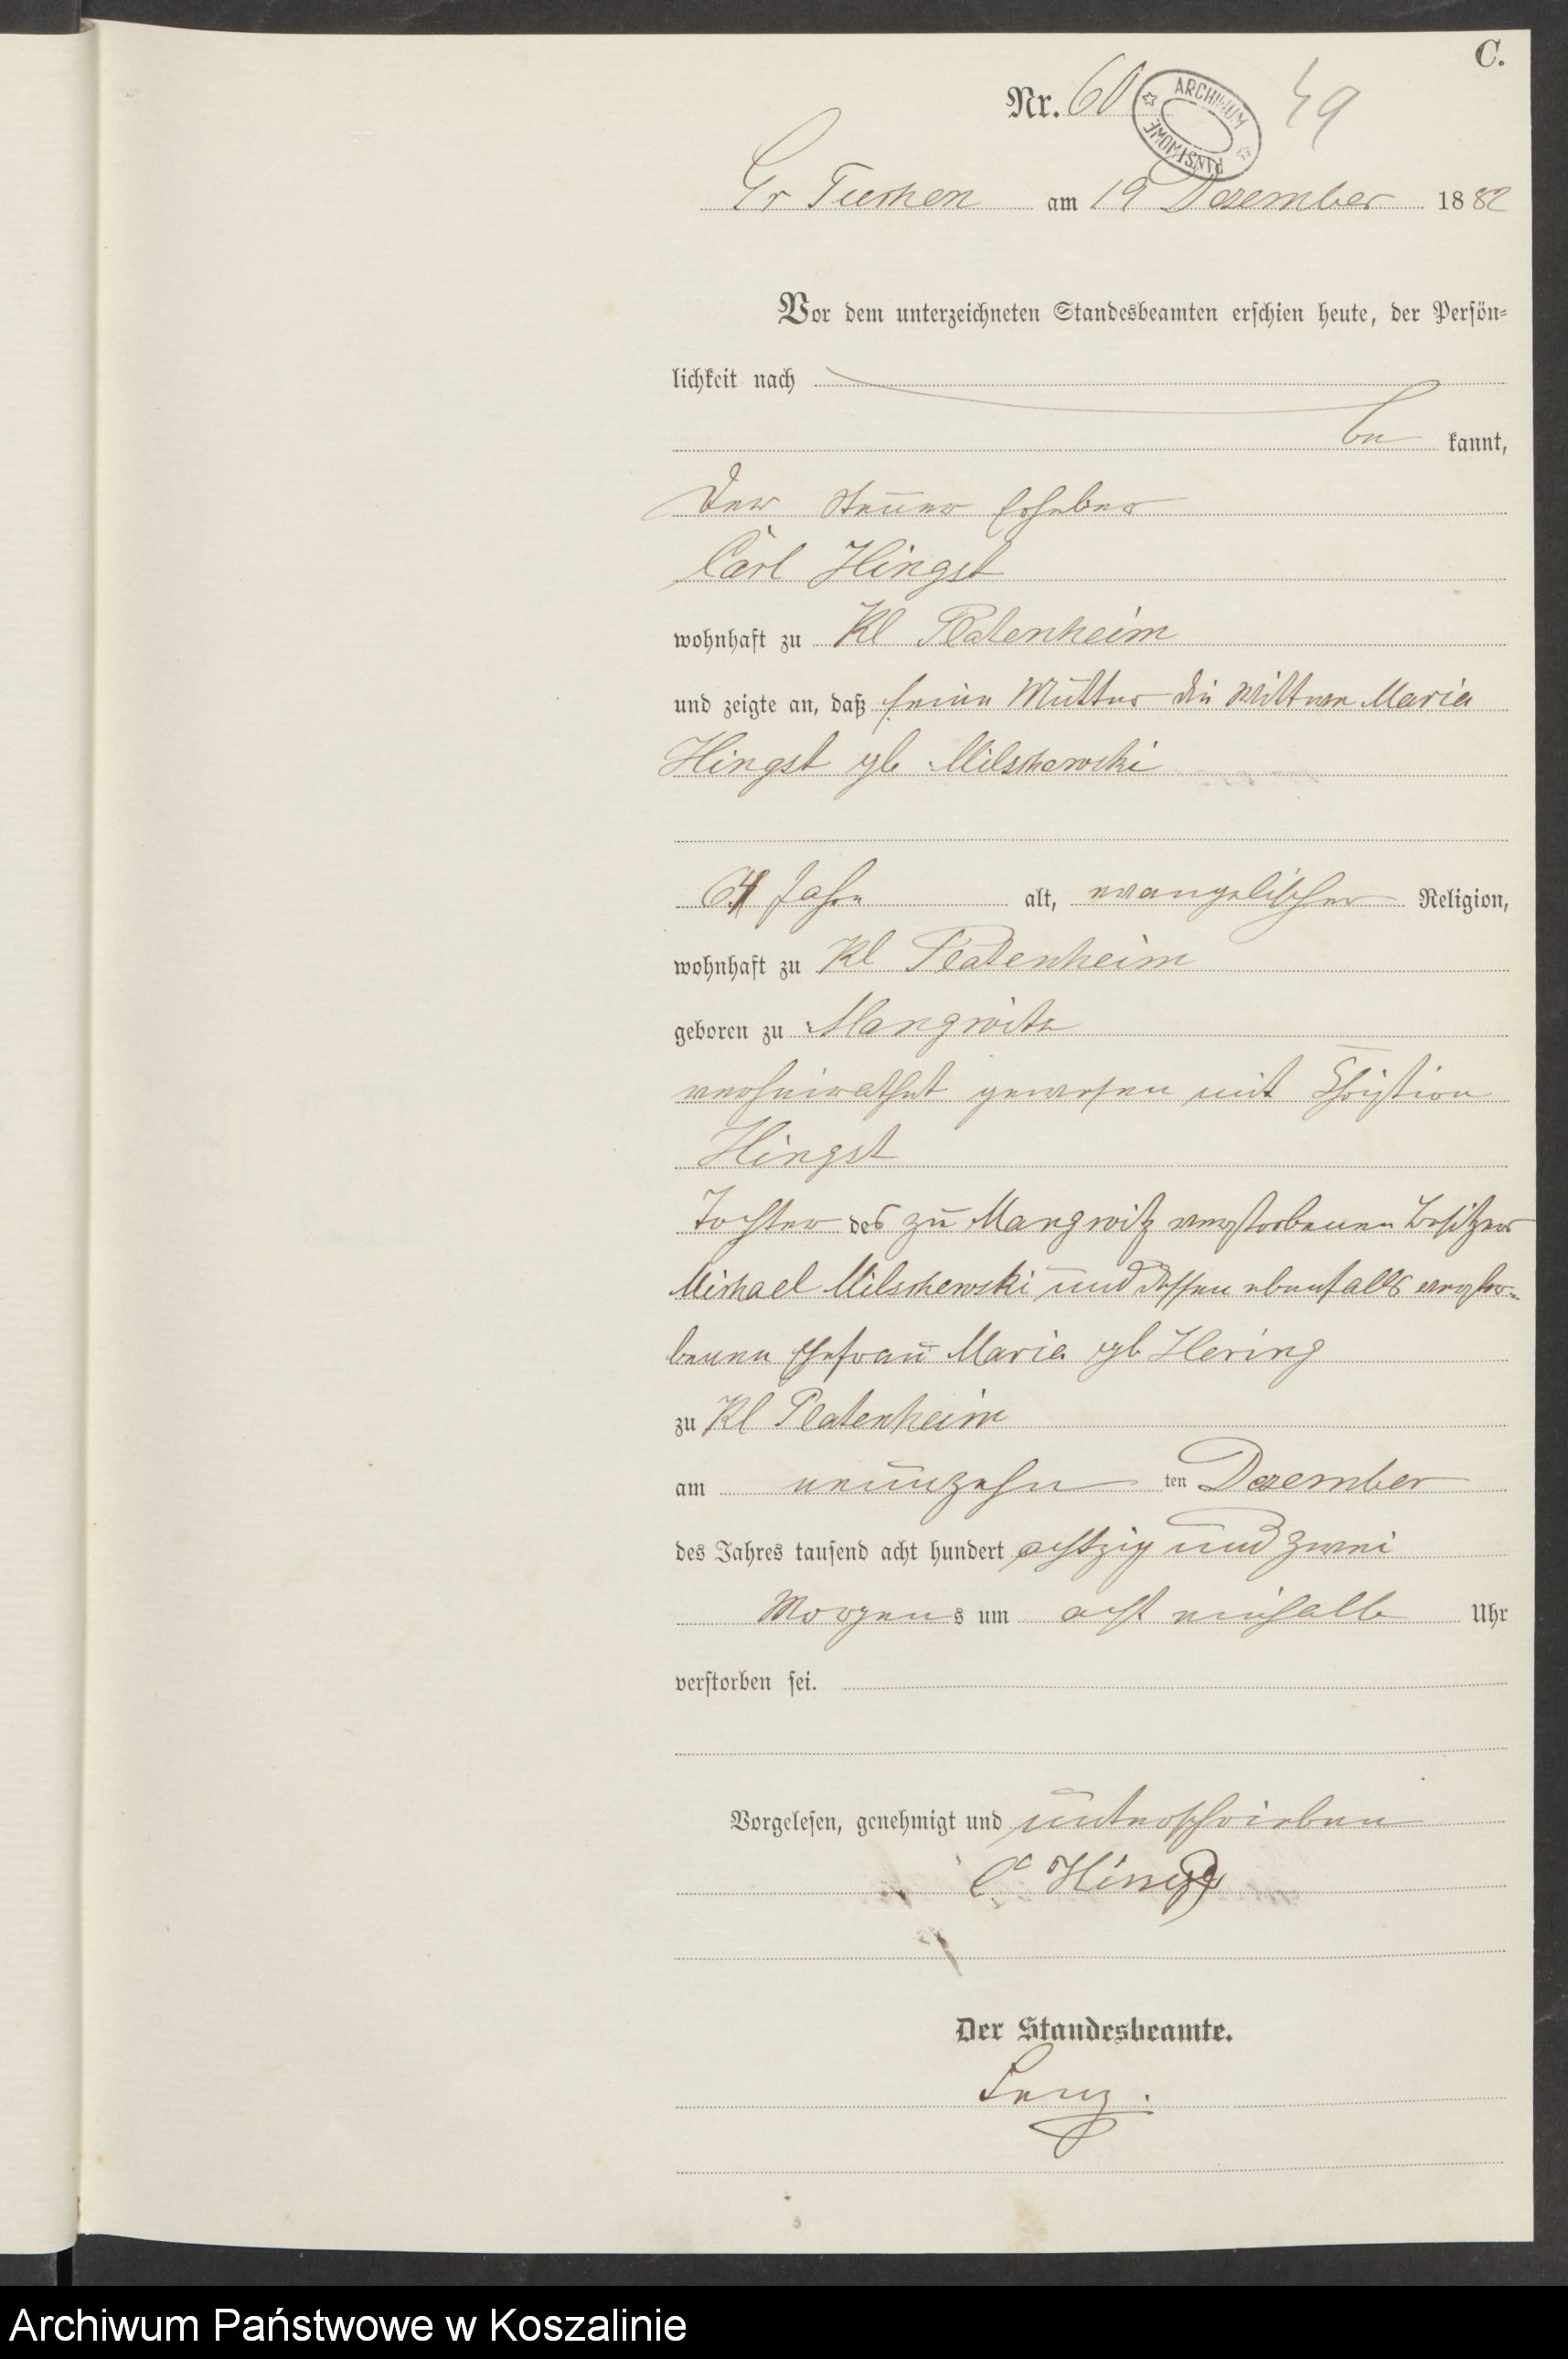 C.
Nr. 60
49
ARCHIWUM PAŃSTWOWE
Gr Tuchen am 19 Dezember 1882
Vor dem unterzeichneten Standesbeamten erschien heute, der Persön-
lichkeit nach
be kannt,
der Steuer Erheber
Carl Hingst
wohnhaft zu Kl Platenheim
und zeigte an, daß seine Mutter die Wittwe Maria
Hingst geb Milschewski
64 Jahre alt, evangelischer Religion,
wohnhaft zu Kl Platenheim
geboren zu Mangwitz
verheirathet gewesen mit Christian
Hingst
Tochter des zu Mangwitz verstorbenen Besitzers
Michael Milschewski und dessen ebenfalls verstor-
benen Ehefrau Maria geb Hering
zu Kl Platenheim
am neunzehn ten Dezember
des Jahres tausend acht hundert achtzig und zwei
Morgens um acht einhalb Uhr
verstorben sei.
Vorgelesen, genehmigt und unterschrieben
C Hingst
Der Standesbeamte.
Lenz.
Archiwum Państwowe w Koszalinie